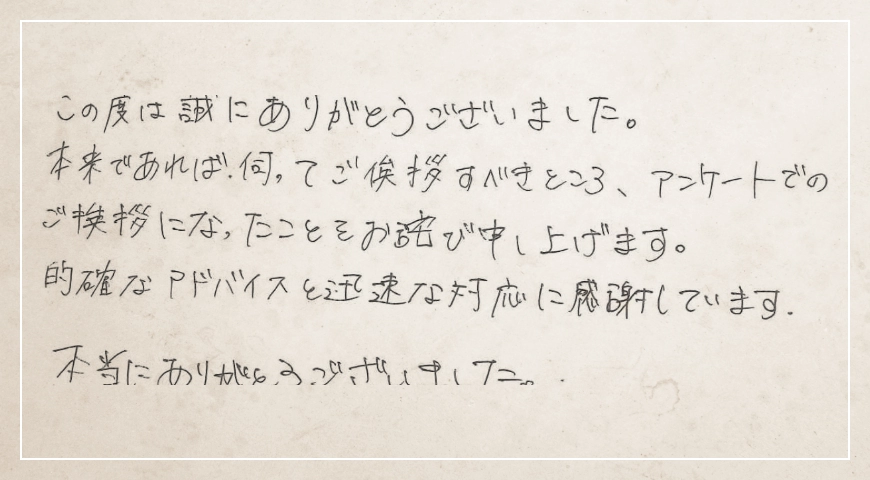 この度は誠にありがとうございました。
本来であれば、伺ってご挨拶すべきところ、アンケートでの
ご挨拶になったことをお詫び申し上げます。
的確なアドバイスと迅速な対応に感謝しています.
本当にありがとうございました。